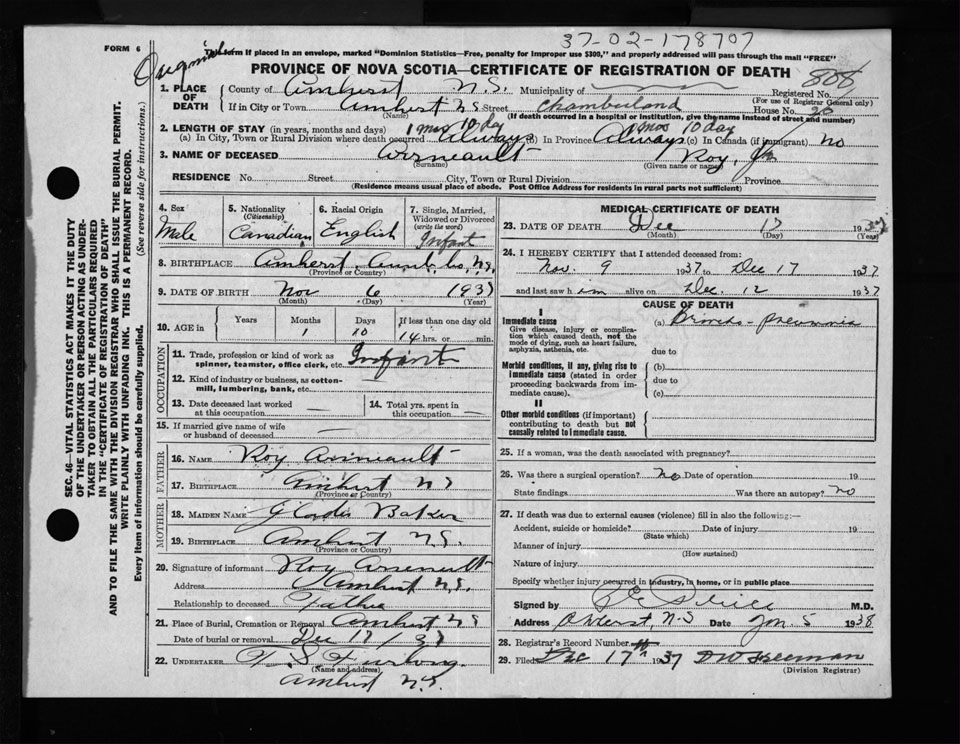 37-02-178707
FORM 6
This form if placed in an envelope, marked "Dominion Statistics—Free, penalty for improper use $300," and properly addressed will pass through the mail "FREE"
PROVINCE OF NOVA SCOTIA—CERTIFICATE OF REGISTRATION OF DEATH
808
1. PLACE OF DEATH
County of Amherst N.S. Municipality of Registered No.
(For use of Registrar General only)
If in City or Town Amherst N.S. Street Chamberland House No. 20
(Name) (If death occurred in a hospital or institution, give the name instead of street and number)
2. LENGTH OF STAY (in years, months and days) 1 mos 10 day 1 mos 10 day
(a) In City, Town or Rural Division where death occurred Always (b) In Province Always (c) In Canada (if immigrant) no
3. NAME OF DECEASED Arsneault Roy, Jr
(Surname) (Given name or names)
RESIDENCE No. Street City, Town or Rural Division Province
(Residence means usual place of abode. Post Office Address for residents in rural parts not sufficient)
4. Sex Male
5. Nationality (Citizenship) Canadian
6. Racial Origin English
7. Single, Married, Widowed or Divorced (write the word) Infant
8. BIRTHPLACE Amherst, Cumb. Co, N.S.
(Province or Country)
9. DATE OF BIRTH Nov 6 1937
(Month) (Day) (Year)
10. AGE in Years Months Days If less than one day old
1 10 14 hrs. or min.
OCCUPATION
11. Trade, profession or kind of work as spinner, teamster, office clerk, etc. Infant
12. Kind of industry or business, as cotton-mill, lumbering, bank, etc.
13. Date deceased last worked at this occupation
14. Total yrs. spent in this occupation
15. If married give name of wife or husband of deceased
FATHER
16. NAME Roy Arsneault
17. BIRTHPLACE Amherst NS
(Province or Country)
MOTHER
18. MAIDEN NAME Gladis Baker
19. BIRTHPLACE Amherst N.S.
(Province or Country)
20. Signature of informant Roy Arseneault
Address Amherst N.S.
Relationship to deceased Father
21. Place of Burial, Cremation or Removal Amherst NS
Date of burial or removal Dec 17/37
22. UNDERTAKER F. S. Furlong
(Name and address)
Amherst N.S.
MEDICAL CERTIFICATE OF DEATH
23. DATE OF DEATH Dec 17 1937
(Month) (Day) (Year)
24. I HEREBY CERTIFY that I attended deceased from:
Nov. 9 1937 to Dec 17 1937
and last saw him alive on Dec. 12 1937
CAUSE OF DEATH
I
Immediate cause
Give disease, injury or complication which caused death, not the mode of dying, such as heart failure, asphyxia, asthenia, etc.
(a) Broncho-pneumonia
due to
Morbid conditions, if any, giving rise to immediate cause (stated in order proceeding backwards from immediate cause).
(b)
due to
(c)
II
Other morbid conditions (if important) contributing to death but not causally related to immediate cause.
25. If a woman, was the death associated with pregnancy?
26. Was there a surgical operation? no Date of operation 19
State findings Was there an autopsy? no
27. If death was due to external causes (violence) fill in also the following:—
Accident, suicide or homicide? Date of injury 19
(State which)
Manner of injury
(How sustained)
Nature of injury
Specify whether injury occurred in industry, in home, or in public place
Signed by M.D.
Address Amherst, N.S Date Jan. 5 1938
28. Registrar's Record Number
29. Filed Dec 17 1937 Freeman
(Division Registrar)
SEC. 46—VITAL STATISTICS ACT MAKES IT THE DUTY
OF THE UNDERTAKER OR PERSON ACTING AS UNDER-
TAKER TO OBTAIN ALL THE PARTICULARS REQUIRED
IN THE "CERTIFICATE OF REGISTRATION OF DEATH"
AND TO FILE THE SAME WITH THE DIVISION REGISTRAR WHO SHALL ISSUE THE BURIAL PERMIT.
WRITE PLAINLY WITH UNFADING INK. THIS IS A PERMANENT RECORD.
Every item of information should be carefully supplied.
(See reverse side for instructions.)